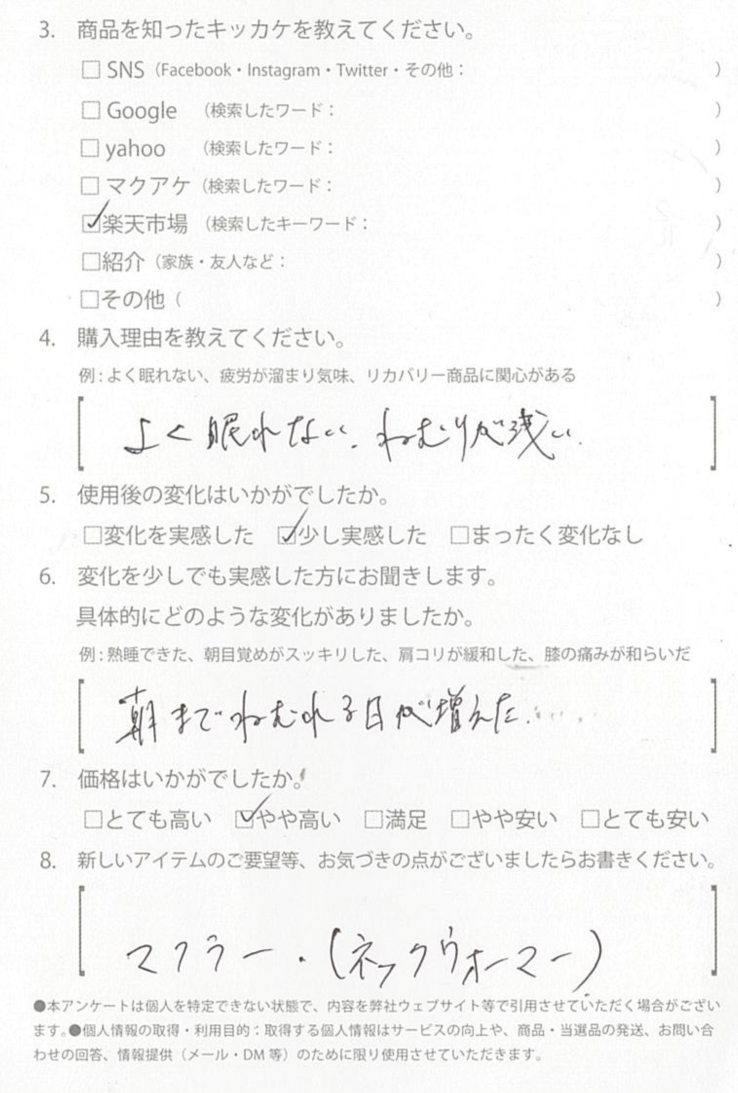 3. 商品を知ったキッカケを教えてください。
□ SNS（Facebook・Instagram・Twitter・その他： ）
□ Google （検索したワード： ）
□ yahoo （検索したワード： ）
□ マクアケ（検索したワード： ）
☑楽天市場 （検索したキーワード： ）
□紹介（家族・友人など： ）
□その他（ ）
4. 購入理由を教えてください。
例：よく眠れない、疲労が溜まり気味、リカバリー商品に関心がある
よく眠れない、ねむりが浅い。
5. 使用後の変化はいかがでしたか。
□変化を実感した ☑少し実感した □まったく変化なし
6. 変化を少しでも実感した方にお聞きします。
具体的にどのような変化がありましたか。
例：熟睡できた、朝目覚めがスッキリした、肩コリが緩和した、膝の痛みが和らいだ
朝までねむれる日が増えた.....
7. 価格はいかがでしたか。
□とても高い ☑やや高い □満足 □やや安い □とても安い
8. 新しいアイテムのご要望等、お気づきの点がございましたらお書きください。
マフラー・(ネックウォーマー)
●本アンケートは個人を特定できない状態で、内容を弊社ウェブサイト等で引用させていただく場合がござい
ます。●個人情報の取得・利用目的：取得する個人情報はサービスの向上や、商品・当選品の発送、お問い合
わせの回答、情報提供（メール・DM 等）のために限り使用させていただきます。